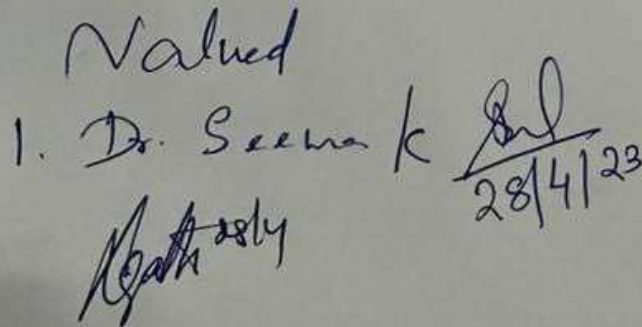 Valued
1. Dr. Seema K
28/4/23
28/4